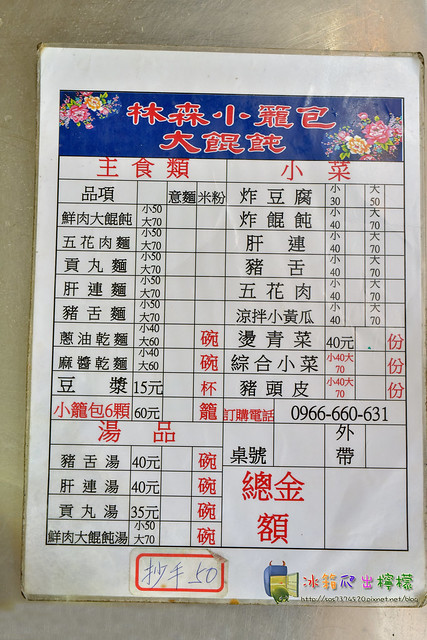 林森小籠包
大餛飩
主食類
品項 意麵 米粉
鮮肉大餛飩 小50 大70
五花肉麵 小50 大70
貢丸麵 小50 大70
肝連麵 小50 大70
豬舌麵 小50 大70
蔥油乾麵 小40 大60 碗
麻醬乾麵 小40 大60 碗
豆漿 15元 杯
小籠包6顆 60元 籠
湯品
豬舌湯 40元 碗
肝連湯 40元 碗
貢丸湯 35元 碗
鮮肉大餛飩湯 小50 大70 碗
小菜
炸豆腐 小30 大50
炸餛飩 小40 大70
肝連 小40 大70
豬舌 小40 大70
五花肉 小40 大70
涼拌小黃瓜 小40 大70
燙青菜 40元 份
綜合小菜 小40大70 份
豬頭皮 小40大70 份
訂購電話 0966-660-631
桌號 外帶
總金額
抄手50
冰箱爬出檸檬
http://sos7174520.pixnet.net/blog